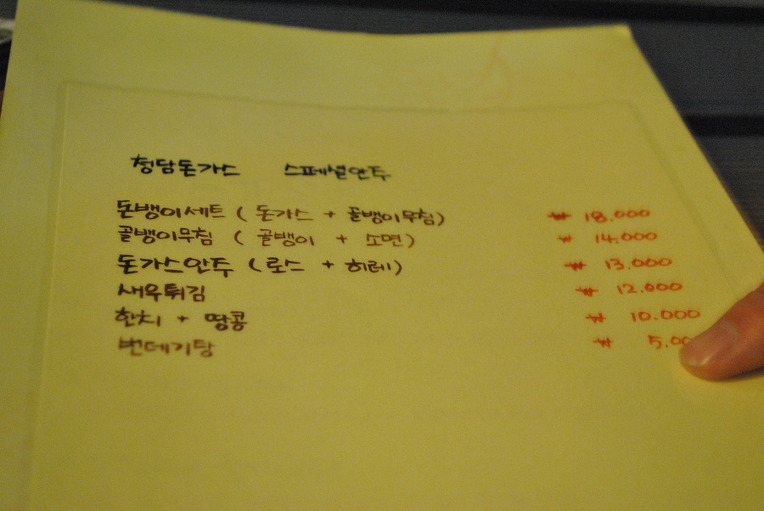 청담돈가스 스페셜안주
돈뱅이세트 ( 돈가스 + 골뱅이무침) ₩ 18,000
골뱅이무침 ( 골뱅이 + 소면) ₩ 14,000
돈가스안주 (로스 + 히레) ₩ 13,000
새우튀김 ₩ 12,000
한치 + 땅콩 ₩ 10,000
번데기탕 ₩ 5,00